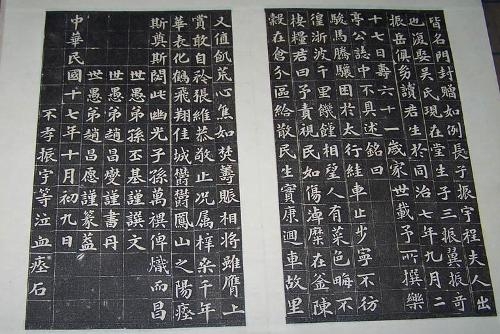 皆名門封贈如例長子振宇程夫人出
也復娶吳氏現在堂生子三振翼振奇
振岳俱幼讀君生於同治七年九月二
十七日壽六十一歲家世載予所撰樂
亭公誌中不具述銘曰
駿馬騰驤困於太行經車止步寧不彷
徨浙波千里饑饉相望人有菜色畮不
棲糧君曰予責視民如傷淖糜在釜陳
穀在倉分區給散民生實康迴車故里
又值飢荒心焦如焚籌賑相將雖膺上
賞敢自矜張維恭敬止況屬梓桑千年
華表化鶴飛翔佳城鬱鬱鳳山之陽瘞
斯奠斯閟此幽光子孫萬禩俾熾而昌
世愚弟孫丕基謹譔文
世愚弟趙昌燮謹書丹
世愚弟趙昌愿謹篆蓋
中華民國十七年十月初九日
不孝振宇等泣血瘞石